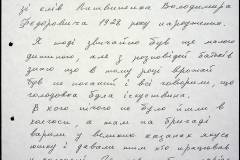 зі слів Литвиненка Володимира
Федоровича 1928 року народження.
Я тоді звичайно був ще малою
дитиною, але з розповідей батьків
знаю що в тому році врожай
був не поганий і всі говорили, що
голодовка була іскуствена.
В кого нічого не було йшли в
колгосп, а там на бригаді
варили у великих казанах якусь
юшку і давали тим хто працював